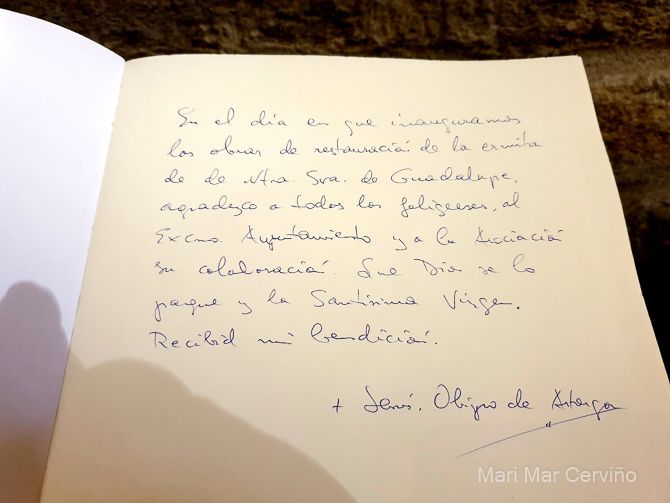 En el día en que inauguramos
las obras de restauración de la ermita
de de Ntra. Sra. de Guadalupe,
agradezco a todos los feligreses, al
Excmo. Ayuntamiento y a la Asociación
su colaboración. Que Dios se lo
pague y la Santísima Virgen.
Recibid mi bendición.
+ Jesús, Obispo de Astorga
Mari Mar Cerviño